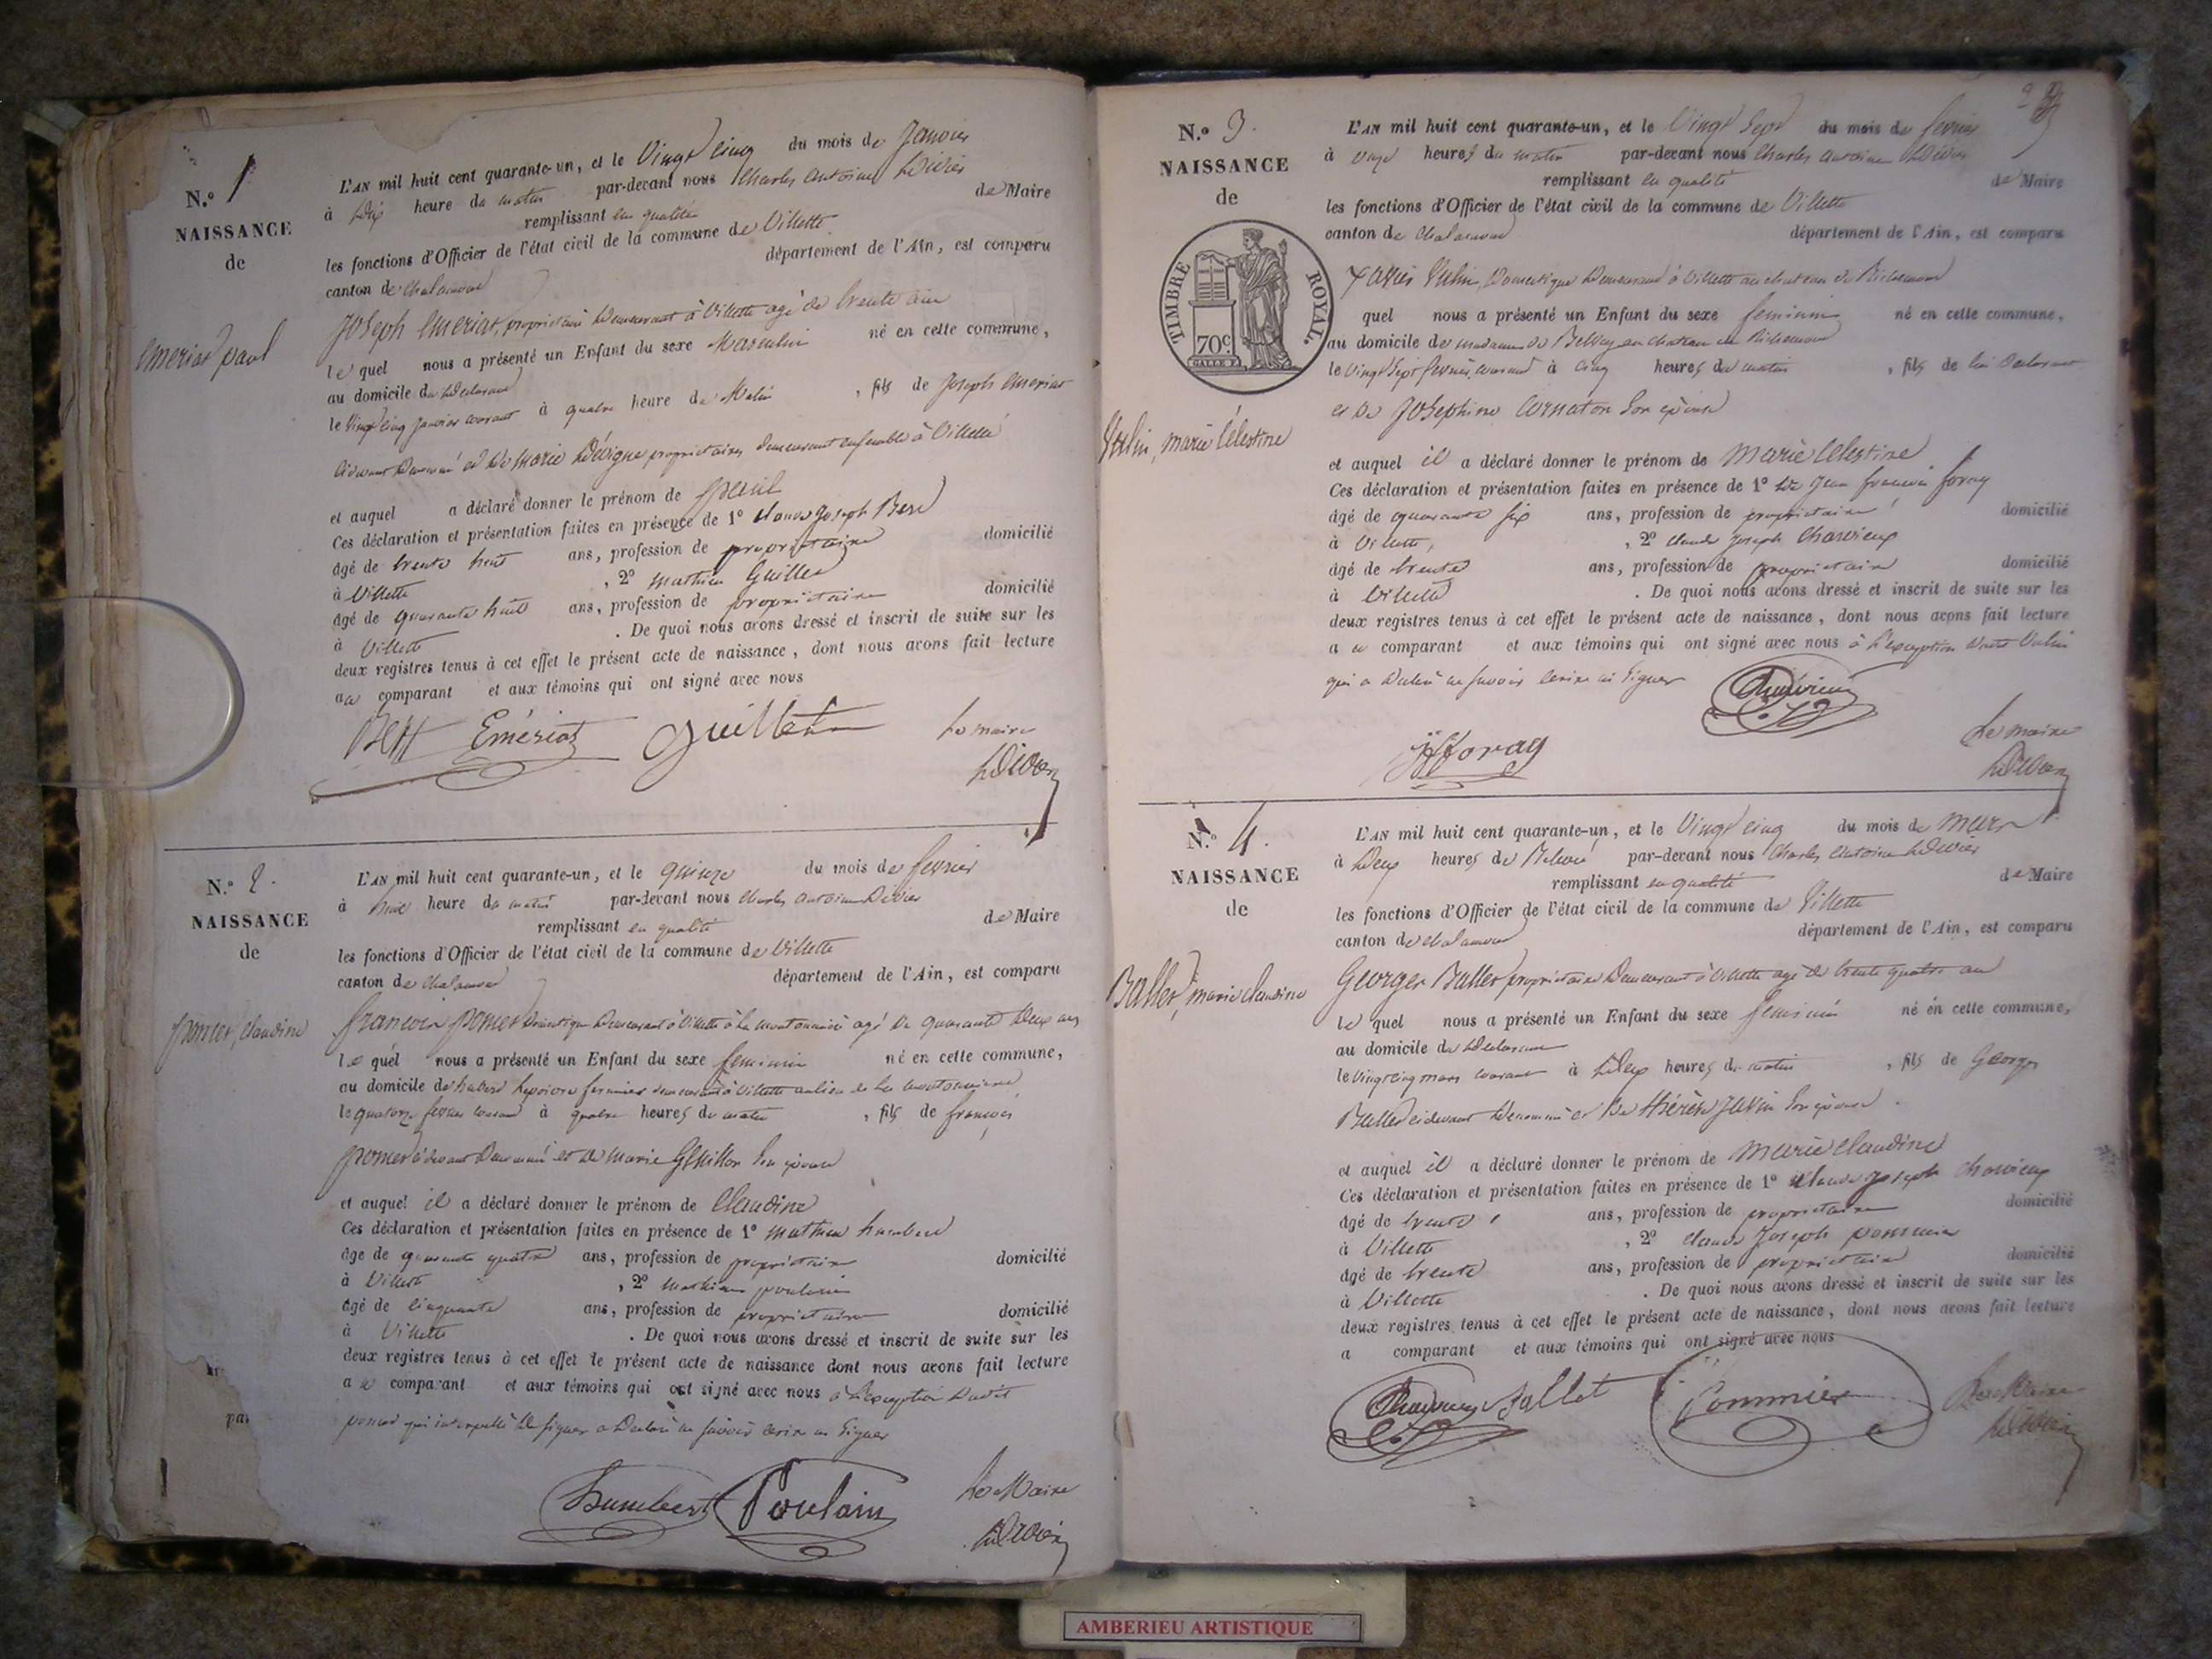 N.o 1
NAISSANCE
de
Emeriat paul
L'AN mil huit cent quarante-un, et le Vingt cinq du mois de Janvier
à dix heure du matin par-devant nous Charles Antoine
remplissant en qualité de Maire
les fonctions d'Officier de l'état civil de la commune de Villette
canton de Chalamont département de l'Ain, est comparu
Joseph Emeriat, propriétaire demeurant à Villette agé de trente
le quel nous a présenté un Enfant du sexe Masculin né en cette commune,
au domicile du déclarant
le Vingt cinq Janvier courant à quatre heure du Matin, fils de Joseph Emeriat
ci devant dénommé et de Marie propriétaires demeurant ensemble à Villette
et auquel a déclaré donner le prénom de paul
Ces déclaration et présentation faites en présence de 1o Claude Joseph
âgé de trente huit ans, profession de propriétaire domicilié
à Villette, 2o Mathieu Guillet
âgé de quarante huit ans, profession de propriétaire domicilié
à Villette. De quoi nous avons dressé et inscrit de suite sur les
deux registres tenus à cet effet le présent acte de naissance, dont nous avons fait lecture
au comparant et aux témoins qui ont signé avec nous
Emériat Guillet Le maire
N.o 2.
NAISSANCE
de
pomet, claudine
L'AN mil huit cent quarante-un, et le quinze du mois de fevrier
à huit heure du matin par-devant nous Charles Antoine
remplissant en qualité de Maire
les fonctions d'Officier de l'état civil de la commune de Villette
canton de Chalamont département de l'Ain, est comparu
francois pomet domestique demeurant à Villette à la agé de quarante deux ans
le quel nous a présenté un Enfant du sexe feminin né en cette commune,
au domicile de fermier demeurant à Villette au lieu de la
le quatorze fevrier courant à quatre heures du matin, fils de françois
pomet ci devant dénommé et de Marie son épouse
et auquel il a déclaré donner le prénom de Claudine
Ces déclaration et présentation faites en présence de 1o Mathieu humbert
âgé de quarante quatre ans, profession de propriétaire domicilié
à Villette, 2o Mathieu poulain
âgé de cinquante ans, profession de propriétaire domicilié
à Villette. De quoi nous avons dressé et inscrit de suite sur les
deux registres tenus à cet effet le présent acte de naissance dont nous avons fait lecture
a ce comparant et aux témoins qui ont signé avec nous à l'exception dudit
pomet qui interpellé de signer a déclaré ne savoir écrire ni signer
Humbert Poulain Le Maire
N.o 3.
NAISSANCE
de
TIMBRE ROYAL.
70c.
marie Célestine
L'AN mil huit cent quarante-un, et le Vingt Sept du mois de fevrier
à onze heures du matin par-devant nous Charles Antoine
remplissant en qualité de Maire
les fonctions d'Officier de l'état civil de la commune de Villette
canton de Chalamont département de l'Ain, est comparu
domestique demeurant à Villette au chateau de Richemont
quel nous a présenté un Enfant du sexe feminin né en cette commune,
au domicile de madame de au chateau de Richemont
le Vingt Sept fevrier courant à cinq heures du matin, fils de lui déclarant
et de Josephine Cornaton son épouse
et auquel il a déclaré donner le prénom de Marie Célestine
Ces déclaration et présentation faites en présence de 1o de Jean françois foray
âgé de quarante six ans, profession de propriétaire domicilié
à Villette, 2o Claude Joseph Charvieux
âgé de trente ans, profession de propriétaire domicilié
à Villette. De quoi nous avons dressé et inscrit de suite sur les
deux registres tenus à cet effet le présent acte de naissance, dont nous avons fait lecture
a ce comparant et aux témoins qui ont signé avec nous à l'exception dudit
qui a déclaré ne savoir écrire ni signer
Charvieux
JFForay Le maire
N.o 4.
NAISSANCE
de
Ballet, marie claudine
L'AN mil huit cent quarante-un, et le Vingt cinq du mois de Mars
à deux heures de par-devant nous Charles Antoine
remplissant en qualité de Maire
les fonctions d'Officier de l'état civil de la commune de Villette
canton de Chalamont département de l'Ain, est comparu
Georges Ballet propriétaire demeurant à Villette agé de trente quatre ans
le quel nous a présenté un Enfant du sexe feminin né en cette commune,
au domicile du déclarant
le vingt cinq mars courant à deux heures du matin, fils de Georges
Ballet ci devant dénommé et de thérèse son épouse.
et auquel il a déclaré donner le prénom de Marie Claudine
Ces déclaration et présentation faites en présence de 1o Claude Joseph Charvieux
âgé de trente ans, profession de propriétaire domicilié
à Villette, 2o Claude Joseph pommier
âgé de trente ans, profession de propriétaire domicilié
à Villette. De quoi nous avons dressé et inscrit de suite sur les
deux registres tenus à cet effet le présent acte de naissance, dont nous avons fait lecture
a comparant et aux témoins qui ont signé avec nous
Charvieux Ballet Pommier Le Maire
AMBERIEU ARTISTIQUE